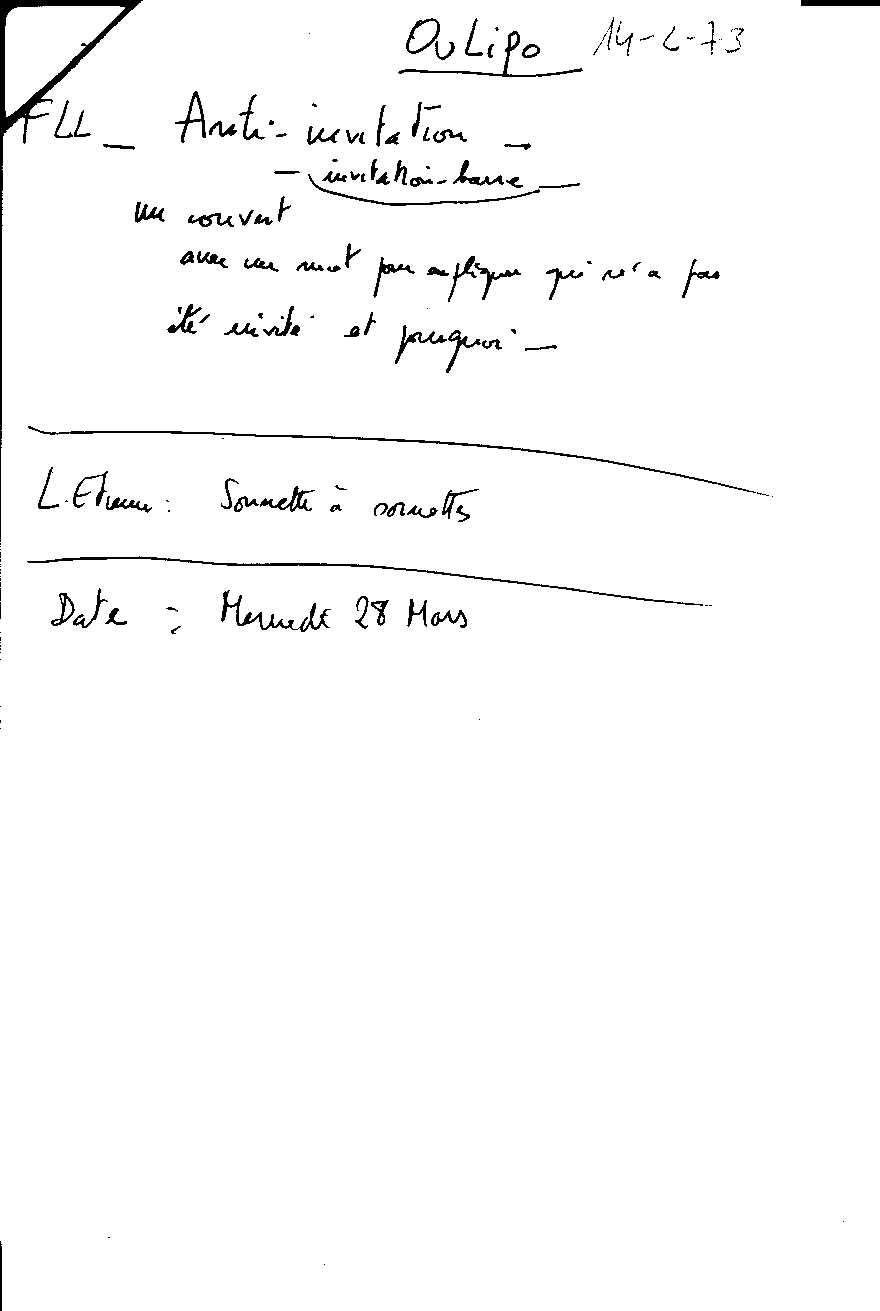 OuLipo 14-2-73
FLL _ Anti-invitation _
- invitation-basse _
un couvert
avec un mot pour expliquer qui n'a pas
été invité et pourquoi _
L. Etienne : Sonnette à sornettes
Date : Mercredi 28 Mars